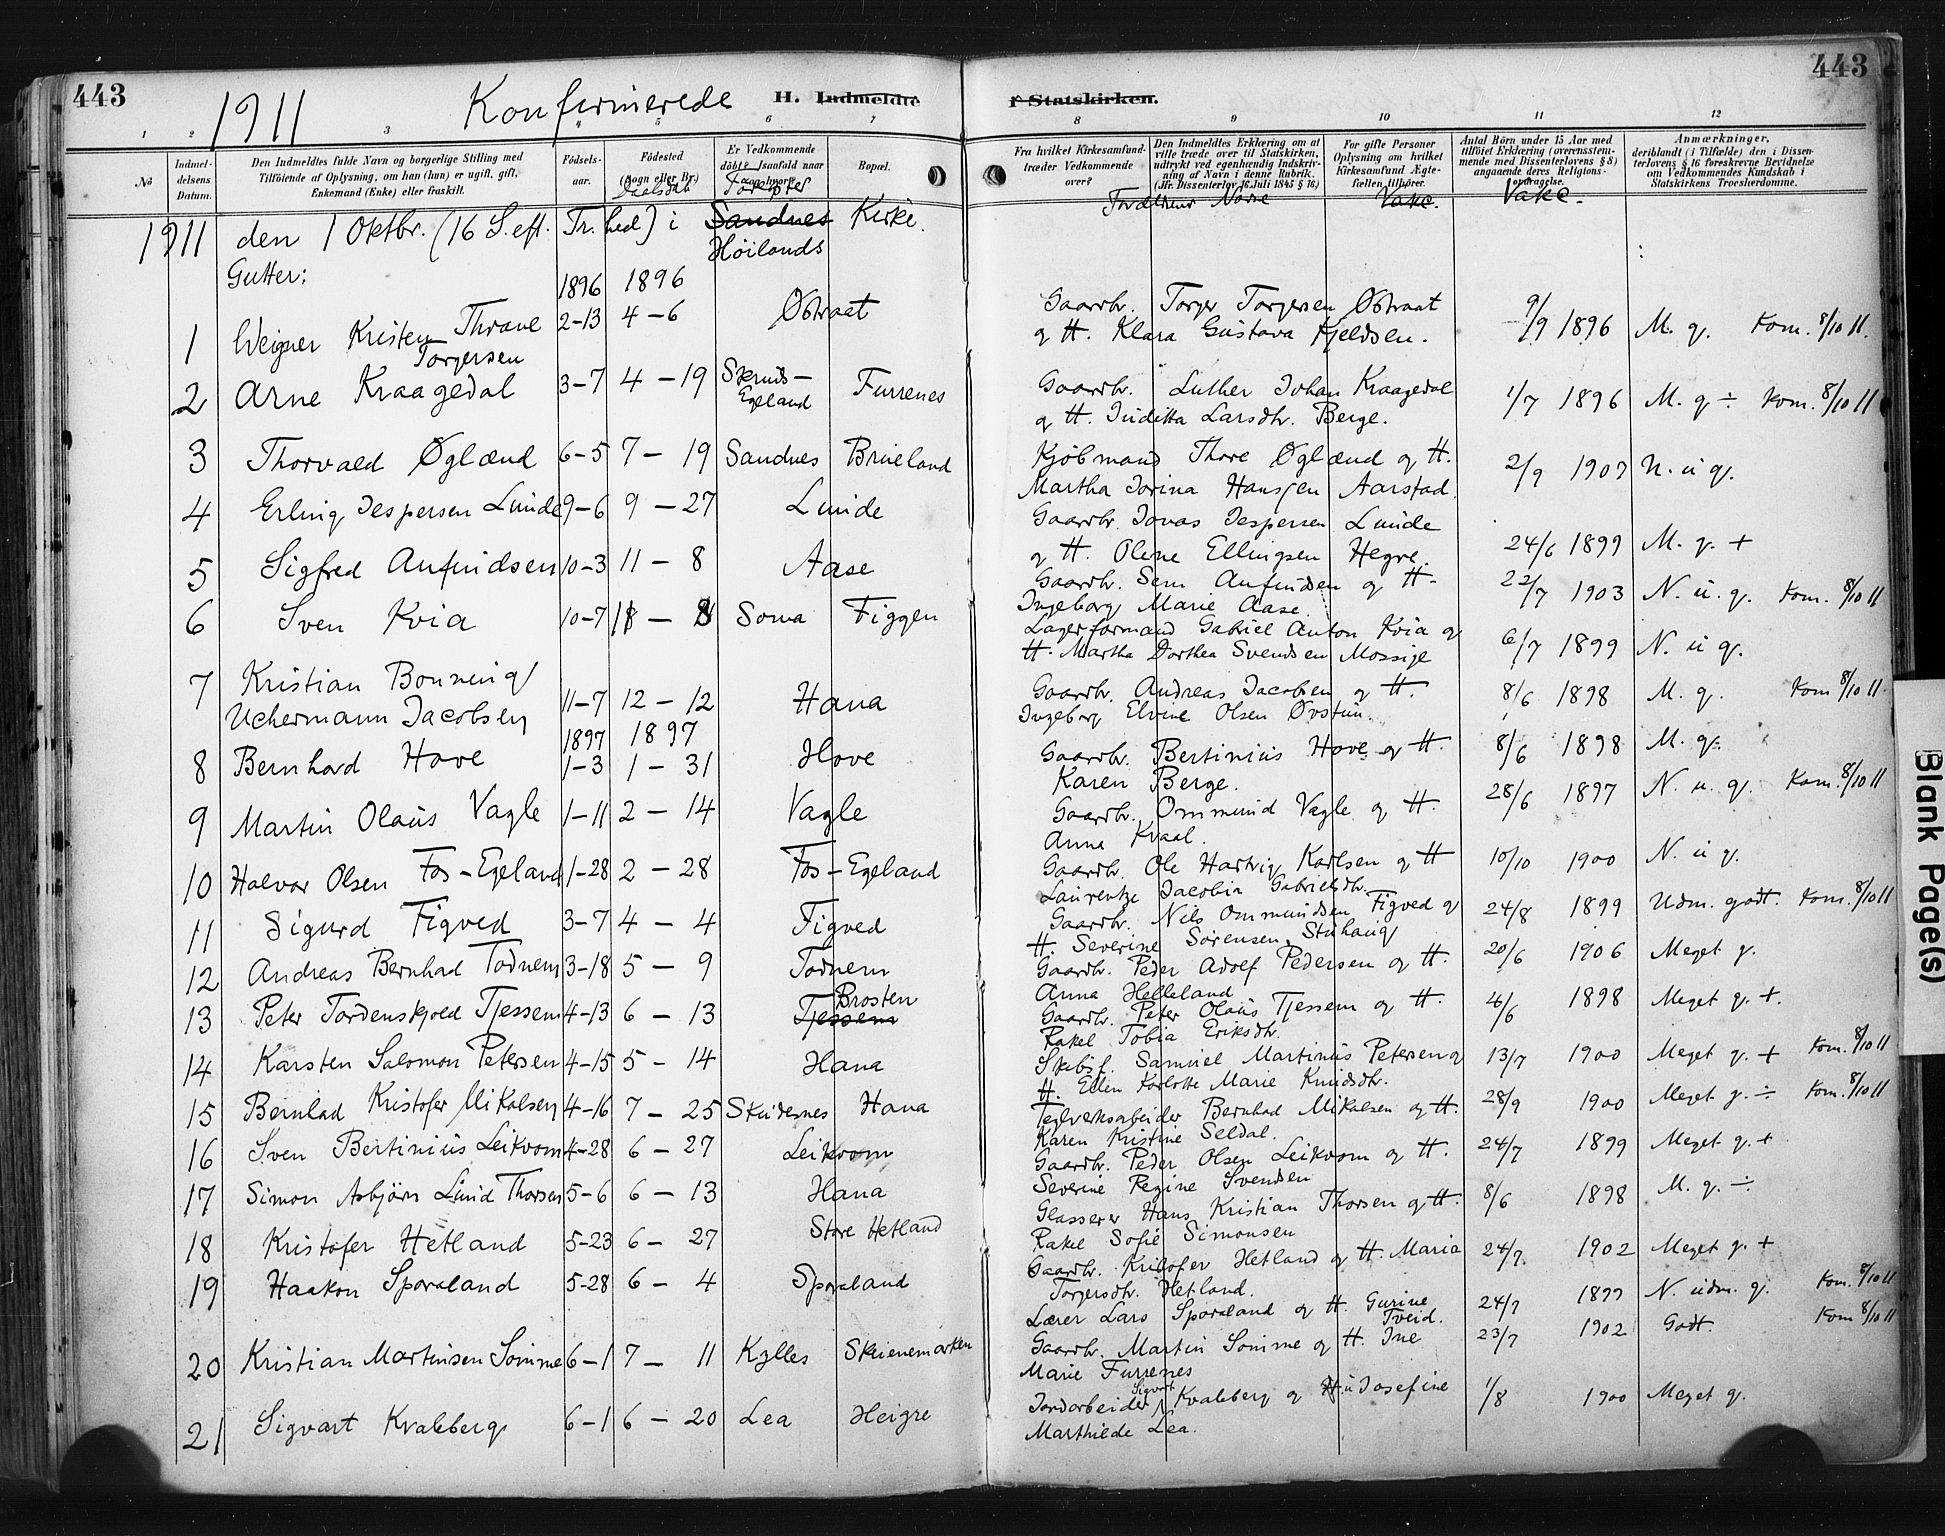 443
1911
Konfirmerede
H. Indmeldte
i Statskirken.
443
1 2 3 4 5 6 7 8 9 10 11 12
No
Indmeldelsens Datum.
Den Indmeldtes fulde Navn og borgerlige Stilling med Tilföiende af Oplysning, om han (hun) er ugift, gift, Enkemand (Enke) eller fraskilt.
Födselsaar.
Födested (Sogn eller By.)
Daabsdat
Er Vedkommende döbt?
Födested
Bopel.
Fra hvilket Kirkesamfund træder Vedkommende over?
Den Indmeldtes Erklæring om at ville træde over til Statskirken, udtrykt ved egenhændig Indskrivning af Navn i denne Rubrik. (Jfr. Dissenterlov 16 Juli 1845 § 16.)
For gifte Personer Oplysning om hvilket Kirkesamfund Ægtefællen tilhører.
Antal Börn under 15 Aar med tilföiet Erklæring (overensstemmende med Dissenterlovens § 8) angaaende deres Religionsopdragelse.
Anmærkninger, deriblandt (i Tilfælde) den i Dissenterlovens § 16 foreskrevne Bevidnelse om Vedkommendes Kundskab i Statskirkens Troeslærdomme.
Forældrenes Navne
Vake.
Vakc.
1911 den 1 Oktbr. (16 S. eft. Tr. hed) i Sandnes Kirke.
Höilands
Gutter:
1896 1896
1 Weigner Kristen Thrane Torgersen 2-13 4-6 Østraat Gaardbr. Torger Torgersen Østraat 9/9 1896 M. g. Kom. 8/10 11.
og H. Klara Gustava Kjeldsen.
2 Arne Kraagedal 3-7 4-19 Skruds-Egeland Furrenes Gaardbr. Luther Johan Kraagedal 1/7 1896 M. g ÷ Kom. 8/10 11
og H. Inditta Larsdtr. Berge.
3 Thorvald Øglænd 6-5 7-19 Sandnes Brueland Kjöbmand Thore Øglænd og H. 2/9 1907 N. u g.
Martha Jorina Hansen Aarstad.
4 Erling Jespersen Lunde 9-6 9-27 Lunde Gaardbr. Jonas Jespersen Lunde 24/6 1899 M. g. +
og H. Olene Ellingsen Hegre.
5 Sigfred Anfindsen 10-3 11-8 Aase Gaardbr. Sem Anfindsen og H. 22/7 1903 N. u. g. Kom. 8/10 11
Ingeborg Marie Aase.
6 Sven Kvia 10-7 11-8 Soma Figgen Lagerformand Gabriel Anton Kvia og 6/7 1899 N. u g.
H. Martha Dorthea Svendsen Mossige
7 Kristian Bonnevig Uchermann Jacobsen 11-7 12-12 Hana Gaardbr. Andreas Jacobsen og H. 8/6 1898 M. g. Kom 8/10 11.
Ingeborg Elvine Olsen Øvstun.
1897 1897
8 Bernhard Hove 1-3 1-31 Hove Gaardbr. Bertinius Hove og H. 8/6 1898 M. g.
Karen Berge.
9 Martin Olaüs Vagle 1-11 2-14 Vagle Gaardbr. Ommund Vagle og H. 28/6 1897 N. u. g. Kom. 8/10 11
Anna Kvaal.
10 Halvor Olsen Fos-Egeland 1-28 2-28 Fos-Egeland Gaardbr. Ole Hartvig Karlsen og H 10/10 1900 N. u g.
Laurentze Jacobia Gabrielsdtr.
11 Sigurd Figved 3-7 4-4 Figved Gaardbr. Nils Ommundsen Figved og 24/8 1899 Udm. godt. Kom. 8/10 11
H. Severine Sörensen Stuhaug
12 Andreas Bernhad Todnem 3-18 5-9 Todnem Gaardbr. Peder Adolf Pedersen og H. 20/6 1906 Meget g.
Anna Helleland
13 Peter Tordenskjold Tjessem 4-13 6-13 Tjessem Brosten Gaardbr. Peter Olaüs Tjessem og H. 4/6 1898 Meget g. +.
Rakel Tobia Eriksdtr.
14 Karsten Salomon Petersen 4-15 5-14 Hana Skibsf. Samuel Martinus Petersen og 13/7 1900 Meget g. + Kom. 8/10 11
H. Ellen Karlotte Marie Knudsdtr.
15 Bernhad Kristofer Mikalsen 4-16 7-25 Skudesnes Hana Teglverksarbeider Bernhad Mikalsen og H. 28/9 1900 Meget g. ÷ Kom. 8/10 11
Karen Kristine Seldal.
16 Sven Bertinius Leikvom 4-28 6-27 Leikvom Gaardbr. Peder Olsen Leikvom og H. 24/7 1899 Meget g. +
Severine Regine Svendsen
17 Simon Asbjörn Lund Thorsen 5-6 6-13 Hana Glasserer Hans Kristian Thorsen og H. 8/6 1898 M. g. ÷.
Rakel Sofie Simonsen
18 Kristofer Hetland 5-23 6-27 Store Hetland Gaardbr. Kristofer Hetland og H. Maria 24/7. 1902 Meget g. +
Torgersdtr. Hetland.
19 Haakon Sporaland 5-28 6-4 Sporaland Lærer Lars Sporaland og H. Gurine Tveid. 24/7 1899 N. udm. g. Kom. 8/10 11
20 Kristian Martinsen Somme 6-1 7-11 Kylles Skeienemarken Gaardbr. Martin Somme og H. Ine 23/7 1902 Godt. Kom 8/10 11
Marie Furrenes
21 Sigvart Kvaleberg 6-1 6-20 Lea Heigre Jordarbeider Sigvart Kvaleberg og H. Josefine 1/8 1900 Meget g.
Marthilde Lea.
Blank Page(s)